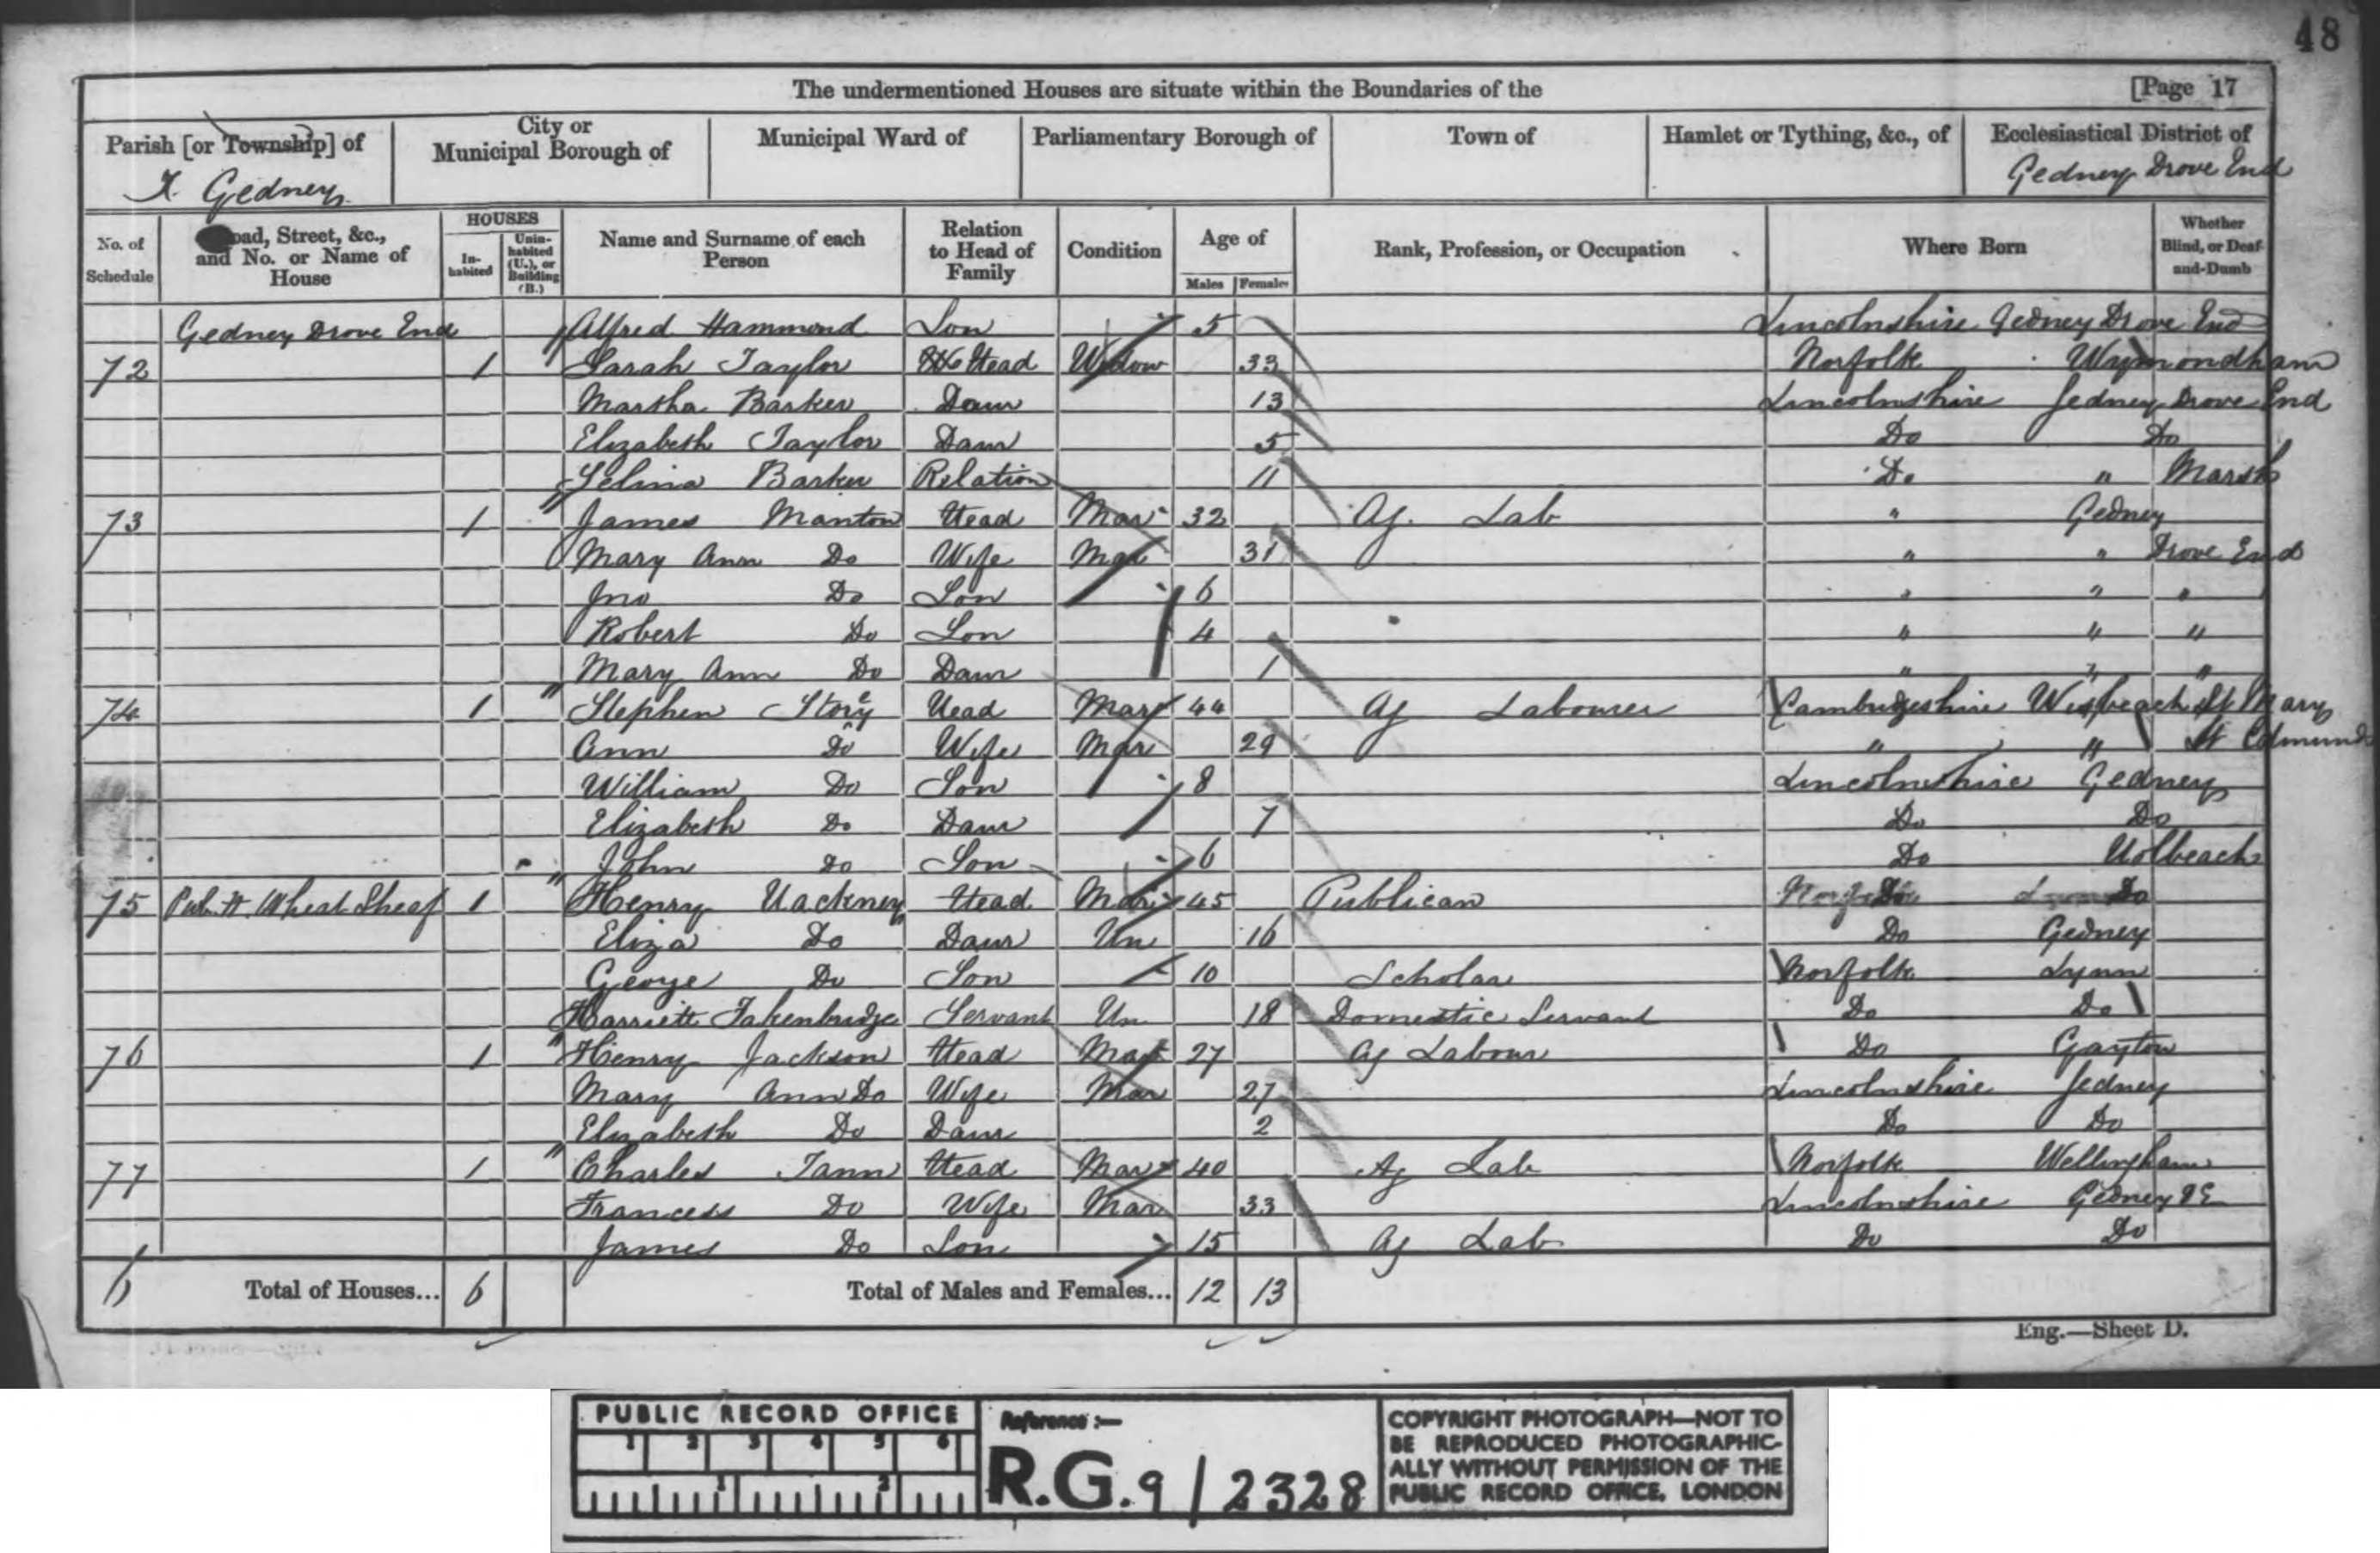 48
The undermentioned Houses are situate within the Boundaries of the [Page 17
Parish [or Township] of City or Municipal Borough of Municipal Ward of Parliamentary Borough of Town of Hamlet or Tything, &c., of Ecclesiastical District of
Gedney Gedney Drove End
No. of Schedule Road, Street, &c., and No. or Name of House HOUSES In-habited Unin-habited (U.), or Building (B.) Name and Surname of each Person Relation to Head of Family Condition Age of Males Females Rank, Profession, or Occupation Where Born Whether Blind, or Deaf-and-Dumb
Gedney Drove End Alfred Hammond Son 5 Lincolnshire Gedney Drove End
72 1 Sarah Taylor Head Widow 33 Norfolk Wymondham
Martha Barker Daur 13 Lincolnshire Gedney Drove End
Elizabeth Taylor Daur 5 Do Do
Selina Barker Relation 11 Do " Marsh
73 1 James Manton Head Mar 32 Ag. Lab " Gedney
Mary Ann Do Wife Mar 31 " " Drove End
Jno Do Son 6 " " "
Robert Do Son 4 " " "
Mary Ann Do Daur 1 " " "
74 1 Stephen Story Head Mar 44 Ag Labourer Cambridgeshire Wisbeach St Mary
Ann Do Wife Mar 29 " " St Edmunds
William Do Son 8 Lincolnshire Gedney
Elizabeth Do Daur 7 Do Do
John Do Son 6 Do Holbeach
75 Pub. H. Wheat Sheaf 1 Henry Hackney Head Mar 45 Publican Do Do
Eliza Do Daur Un 16 Do Gedney
George Do Son 10 Scholar Norfolk Lynn
Harriett Fakenbridge Servant Un 18 Domestic Servant Do Do
76 1 Henry Jackson Head Mar 27 Ag Labour Do Gayton
Mary Ann Do Wife Mar 27 Lincolnshire Gedney
Elizabeth Do Daur 2 Do Do
77 1 Charles Tann Head Mar 40 Ag Lab Norfolk Wellingham
Frances Do Wife Mar 33 Lincolnshire Gedney DE
James Do Son 15 Ag Lab Do Do
6 Total of Houses... 6 Total of Males and Females... 12 13
Eng.—Sheet D.
PUBLIC RECORD OFFICE
1 2 3 4 5 6
1 2
Reference :—
R.G. 9/2328
COPYRIGHT PHOTOGRAPH—NOT TO
BE REPRODUCED PHOTOGRAPHIC-
ALLY WITHOUT PERMISSION OF THE
PUBLIC RECORD OFFICE, LONDON